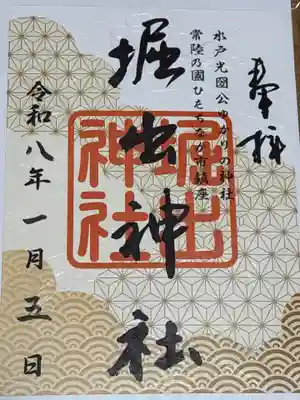 奉拝
水戸光圀公ゆかりの神社
常陸乃國ひたちなか市鎮座
堀出神社
堀出神社
令和八年一月五日